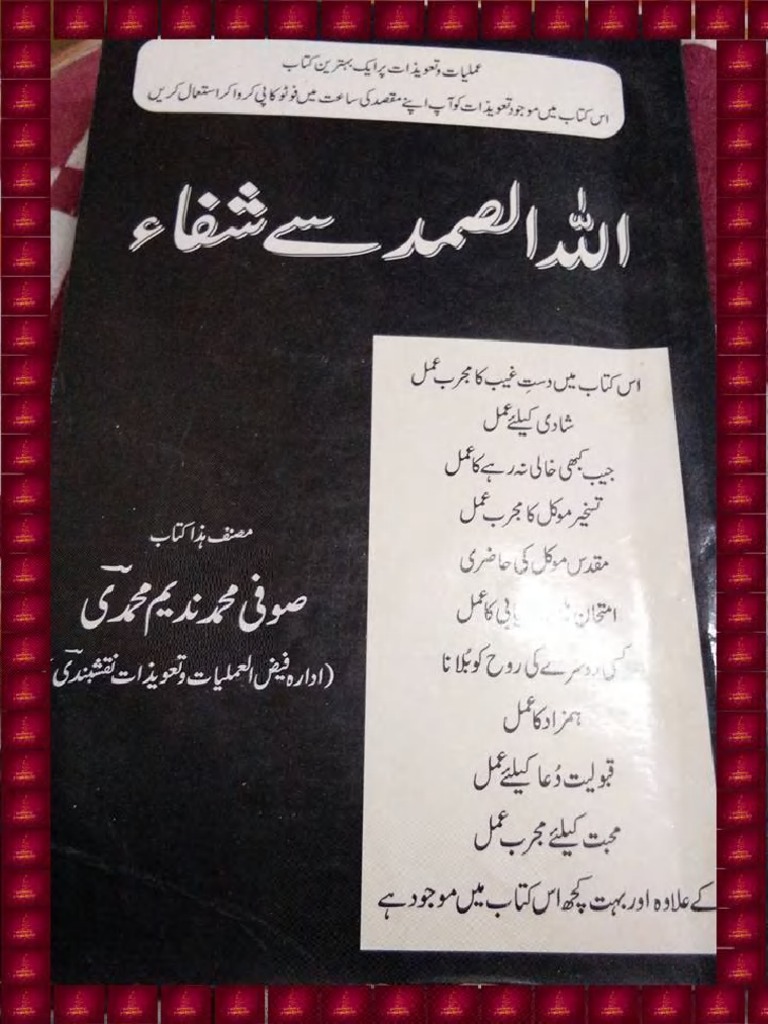 عملیات و تعویذات پر ایک بہترین کتاب
اس کتاب میں موجود تعویذات کو آپ اپنے مقصد کی ساعت میں فوٹو کاپی کروا کر استعمال کریں
اللہ الصمد سے شفاء
اس کتاب میں دستِ غیب کا مجرب عمل
شادی کیلئے عمل
جیب کبھی خالی نہ رہے کا عمل
تسخیر موکل کا مجرب عمل
مقدس موکل کی حاضری
امتحان کا عمل
کسی دوسرے کی روح کو بُلانا
ہمزاد کا عمل
قبولیت دُعا کیلئے عمل
محبت کیلئے مجرب عمل
کے علاوہ اور بہت کچھ اس کتاب میں موجود ہے
مصنف ہذا کتاب
صوفی محمد ندیم محمدی
(ادارہ فیض العملیات و تعویذات نقشبندی)